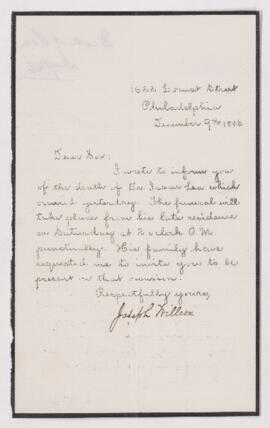 1622 Locust Street
Philadelphia
December 9th 1886
Dear Sir:
I write to inform you
of the death of Dr. Isaac Lea which
occurred yesterday. The funeral will
take place from his late residence
on Saturday at 2 o'clock P.M.
punctually. His family have
requested me to invite you to be
present on that occasion.
Respectfully yours,
Joseph Willcox